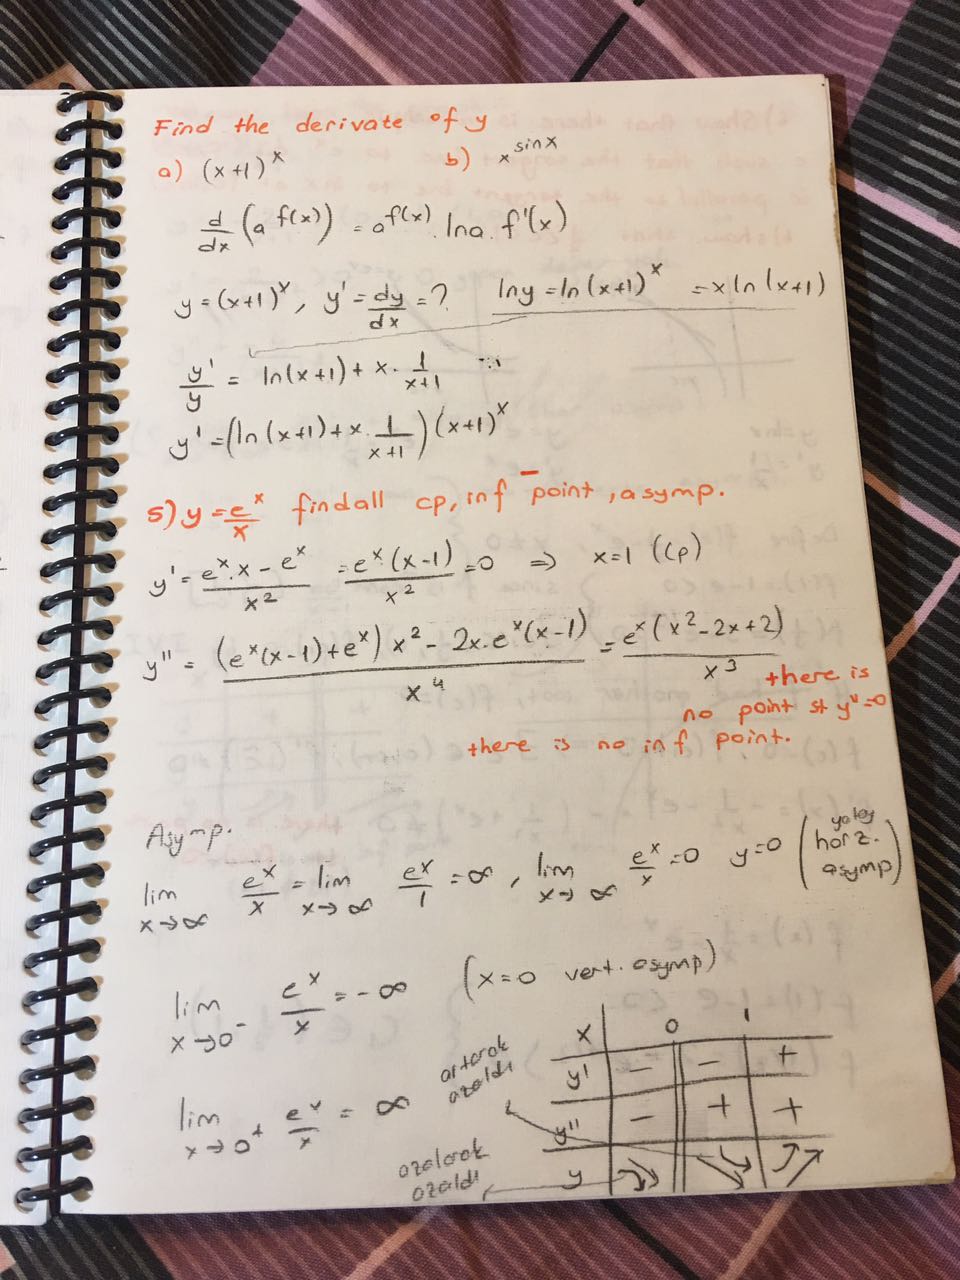 Find the derivate of y
a) (x+1)^x b) x^sinx
d/dx (a^f(x)) = a^f(x) . lna . f'(x)
y = (x+1)^x , y' = dy/dx = ? lny = ln(x+1)^x = x ln(x+1)
y'/y = ln(x+1) + x . 1/(x+1)
y' = (ln(x+1) + x . 1/(x+1)) (x+1)^x
5) y = e^x/x find all cp, inf point, asymp.
y' = (e^x.x - e^x)/x^2 = e^x(x-1)/x^2 = 0 ⇒ x=1 (cp)
y'' = ((e^x(x-1)+e^x) x^2 - 2x.e^x(x-1))/x^4 = e^x(x^2-2x+2)/x^3
there is
no point st y''=0
there is no inf point.
Asymp.
lim x→∞ e^x/x = lim x→∞ e^x/1 = ∞ , lim x→∞ e^x/x = 0 y=0 (yatay horz. asymp)
lim x→0^- e^x/x = -∞ (x=0 vert. asymp)
lim x→0^+ e^x/x = ∞
x 0 1
y' - - +
y'' - + +
y ↘ ↘ ↗
artarak
azaldı
azalarak
azaldı